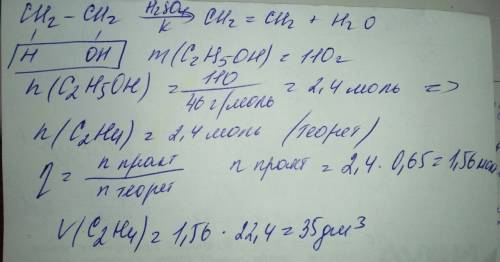 CH₂ - CH₂ H₂SO₄, к → CH₂ = CH₂ + H₂O
H OH m(C₂H₅OH) = 110г
n(C₂H₅OH) = 110 / 46 г/моль = 2,4 моль =>
n(C₂H₄) = 2,4 моль (теорет)
η = n практ / n теорет n практ = 2,4 · 0,65 = 1,56 моль
V(C₂H₄) = 1,56 · 22,4 = 35 дм³